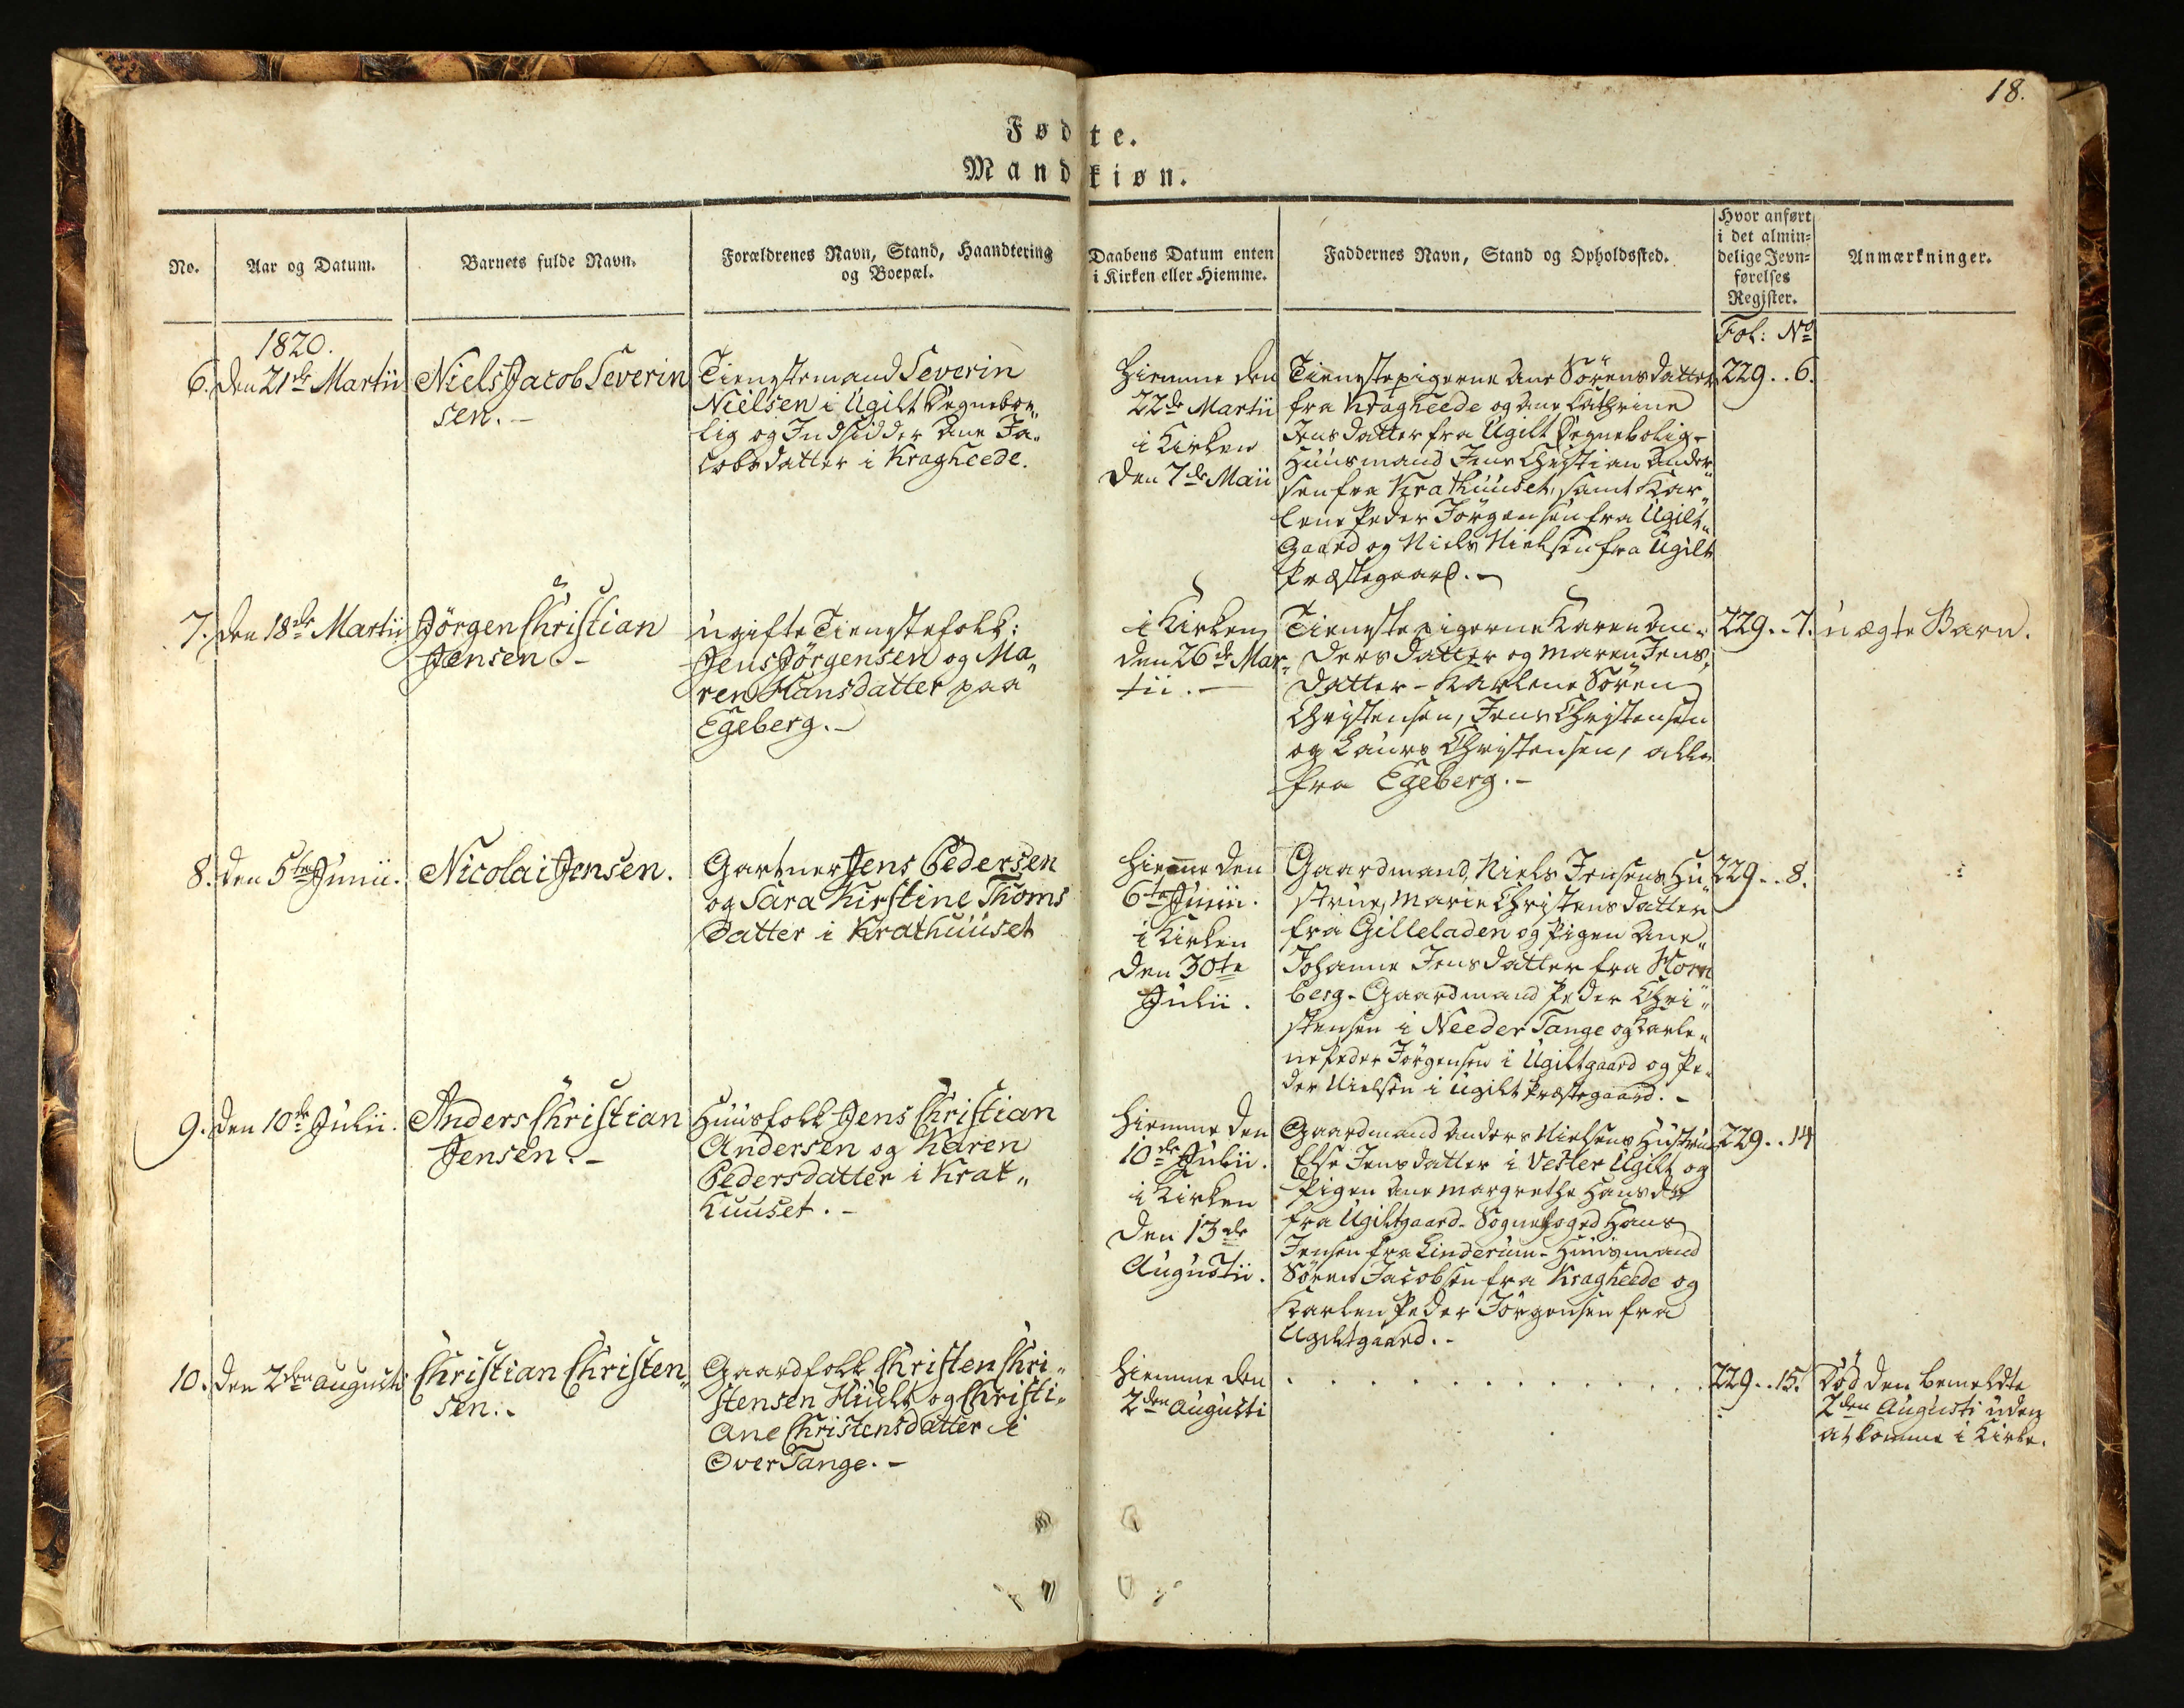 18.
Fødte.
Mandkiøn.
No.
Aar og Datum.
Barnets fulde Navn.
Forældrenes Navn, Stand, Haandtering
og Boepæl.
Daabens Datum enten
i Kirken eller Hiemme.
Faddernes Navn, Stand og Opholdssted.
Hvor anført
i det almin-
delige Jevn-
førelses
Register.
Anmærkninger.
Fol: No
1820.
6. den 21de Martii
Niels Jacob Severin
sen. -
Tienstemand Severin
Nielsen i Ugilt Degnebo„
lig og Indsidder Ane Ja„
cobsdatter i Kragheede.
Hiemme den
22de Martii
i Kirken
den 7de Maii
Tienstepigerne Ane Sörensdatter
fra Kragheede og Ane Cathrine
Jensdatter fra Ugilt Degnebolig -
Huusmand Jens Christian Ander„
sen fra Krathuuset, samt Kar„
lene Peder Jörgensen fra Ugilt„
Gaard og Niels Nielsen fra Ugilt
Præstegaard. -
229..6.
7. den 18de Martii
Jörgen Christian
Jensen. -
ugifte Tienstefolk:
Jens Jörgensen og Ma„
ren Hansdatter paa
Egeberg. -
i Kirken
den 26de Mar„
tii. -
Tienstepigerne Karen An„
dersdatter og Maren Jens„
datter - Karlene Sören
Christensen, Jens Christensen
og Laurs Christensen, alle
fra Egeberg. -
229..7.
uægte Barn.
8. den 5te Junii.
Nicolai Jensen.
Gartner Jens Pedersen
og Sara Kirstine Thoms
datter i Krathuuset
Hiemme den
6te Junii.
i Kirken
den 30te
Julii.
Gaardmand Niels Jensens Hu„
strue, Marie Christensdatter
fra Gilleladen og Pigen Ane„
Johanne Jensdatter fra Horn
berg - Gaardmand Peder Chri„
stensen i Needer Tange og Karle„
ne Peder Jörgensen i Ugiltgaard og Pe„
der Nielsen i Ugilt Præstegaard. -
229..8.
9. den 10de Julii.
Anders Christian
Jensen. -
Huusfolk Jens Christian
Andersen og Karen
Pedersdatter i Krat„
huuset. -
Hiemme den
10de Julii.
i Kirken
den 13de
Augustii.
Gaardmand Anders Nielsens Hustrue
Else Jensdatter i Vester Ugilt og
Pigen Ane Margrethe Hansdr
fra Ugiltgaard - Sognefoged Hans
Jensen fra Linderum - Huusmand
Sören Jacobsen fra Kragheede og
Karlen Peder Jörgensen fra
Ugiltgaard. -
229..14
10. den 2den Augusti
Christian Christen„
sen. -
Gaardfolk Christen Chri„
stensen og Christi„
ane Christensdatter i
Over Tange. -
Hiemme den
2den Augusti
. . . . . . . . . . . .
229..15.
Död den bemeldte
2den Augusti uden
at komme i Kirke.